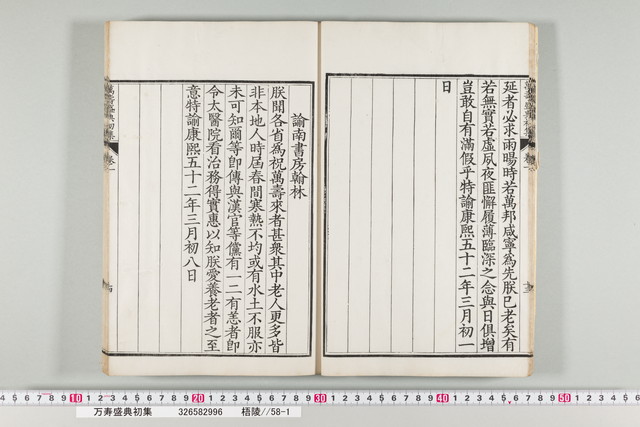 延者必求雨暘時若萬邦咸寧為先朕已老矣有
若無實若虛夙夜匪懈履薄臨深之念與日俱增
豈敢自有滿假乎特諭康熙五十二年三月初一
日
諭南書房翰林
朕聞各省為祝萬壽來者甚衆其中老人更多皆
非本地人時屆春間寒熱不均或有水土不服亦
未可知爾等卽傳與漢官等儻有一二有恙者卽
令太醫院看治務得實惠以知朕愛養老者之至
意特諭康熙五十二年三月初八日
卷一
10 20 30 40 50
万寿盛典初集 326582996 梧陵//58-1